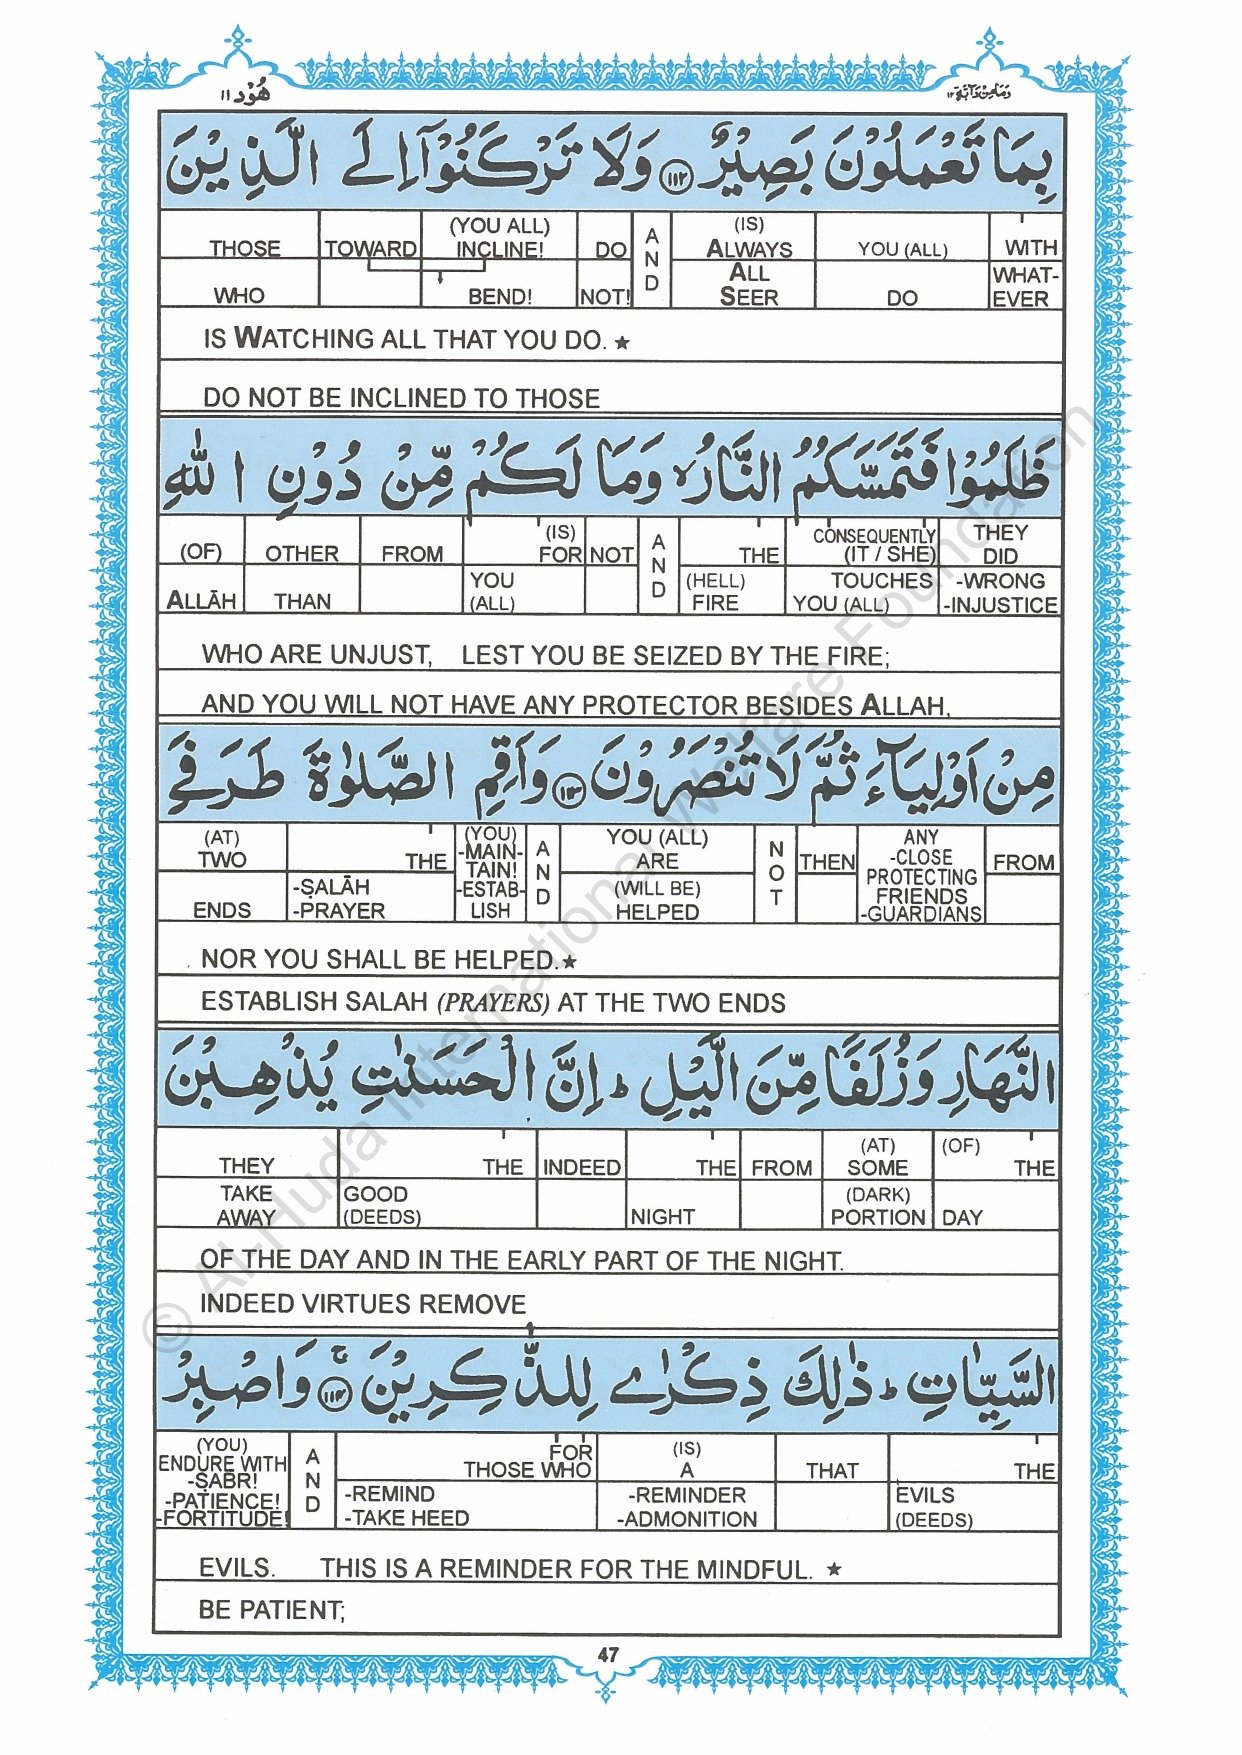 هُوْد ١١
وَمَا مِنْ دَآبَّةٍ ١٢
بِمَا تَعْمَلُوْنَ بَصِيْرٌ ١١٢ وَلَا تَرْكَنُوْٓا اِلَى الَّذِيْنَ
THOSE TOWARD (YOU ALL) INCLINE! DO AND (IS) ALWAYS YOU (ALL) WITH
WHO BEND! NOT! ALL SEER DO WHAT-EVER
IS WATCHING ALL THAT YOU DO. ★
DO NOT BE INCLINED TO THOSE
ظَلَمُوْا فَتَمَسَّكُمُ النَّارُ ۙ وَمَا لَكُمْ مِّنْ دُوْنِ اللّٰهِ
(OF) OTHER FROM (IS) FOR NOT AND THE CONSEQUENTLY (IT / SHE) THEY DID
ALLĀH THAN YOU (ALL) (HELL) FIRE TOUCHES YOU (ALL) -WRONG -INJUSTICE
WHO ARE UNJUST, LEST YOU BE SEIZED BY THE FIRE;
AND YOU WILL NOT HAVE ANY PROTECTOR BESIDES ALLAH,
مِنْ اَوْلِيَآءَ ثُمَّ لَا تُنْصَرُوْنَ ١١٣ وَاَقِمِ الصَّلٰوةَ طَرَفَيِ
(AT) TWO THE (YOU) -MAIN-TAIN! -ESTAB-LISH AND YOU (ALL) ARE NOT THEN ANY -CLOSE PROTECTING FRIENDS -GUARDIANS FROM
ENDS -ṢALĀH -PRAYER (WILL BE) HELPED
NOR YOU SHALL BE HELPED. ★
ESTABLISH SALAH (PRAYERS) AT THE TWO ENDS
النَّهَارِ وَزُلَفًا مِّنَ الَّيْلِ ؕ اِنَّ الْحَسَنٰتِ يُذْهِبْنَ
THEY THE INDEED THE FROM (AT) SOME (OF) THE
TAKE AWAY GOOD (DEEDS) NIGHT (DARK) PORTION DAY
OF THE DAY AND IN THE EARLY PART OF THE NIGHT.
INDEED VIRTUES REMOVE
السَّيِّاٰتِ ؕ ذٰلِكَ ذِكْرٰى لِلذّٰكِرِيْنَ ١١٤ ۚ وَاصْبِرْ
(YOU) ENDURE WITH -ṢABR! -PATIENCE! -FORTITUDE! AND FOR THOSE WHO (IS) A THAT THE
-REMIND -TAKE HEED -REMINDER -ADMONITION EVILS (DEEDS)
EVILS. THIS IS A REMINDER FOR THE MINDFUL. ★
BE PATIENT;
47
© Al-Huda International Welfare Foundation